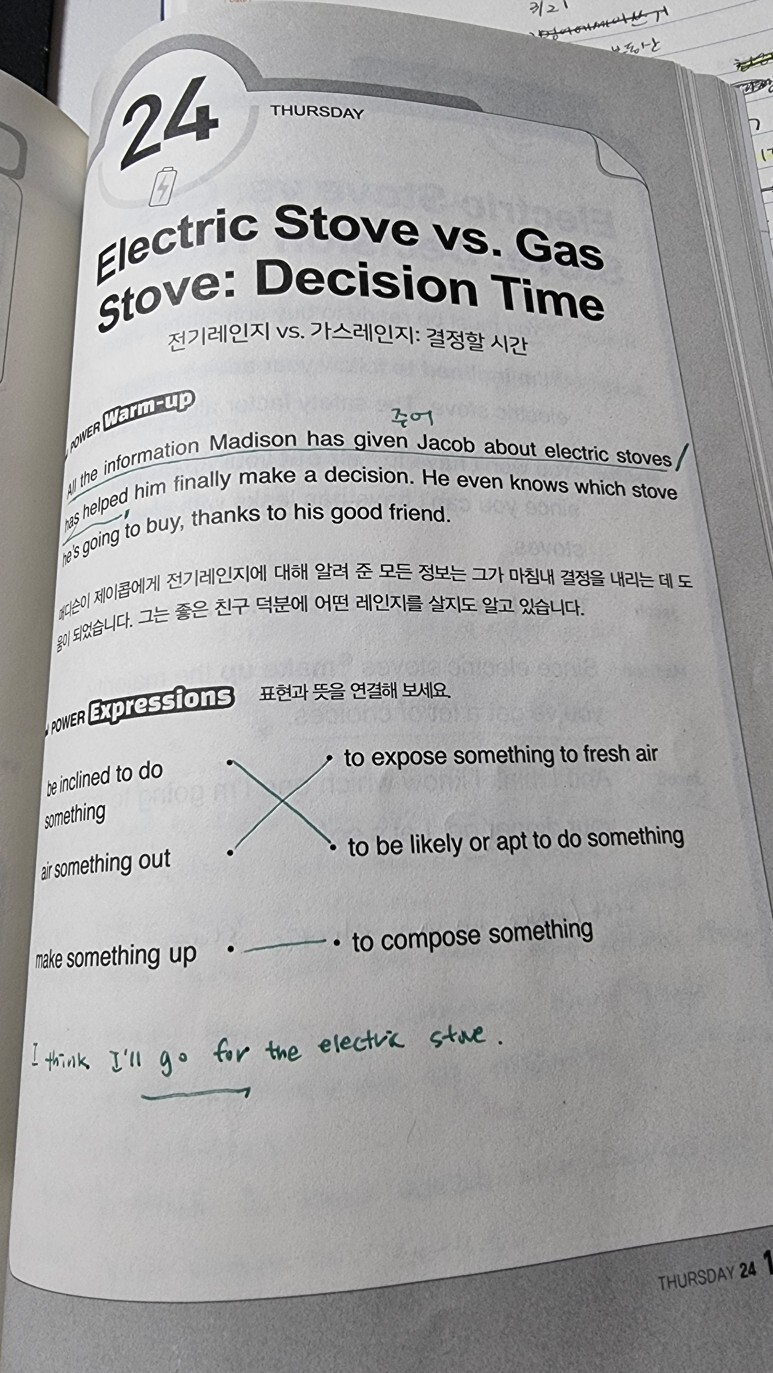 3/21
24
THURSDAY
Electric Stove vs. Gas
Stove: Decision Time
전기레인지 vs. 가스레인지: 결정할 시간
POWER Warm-up
주어
All the information Madison has given Jacob about electric stoves
has helped him finally make a decision. He even knows which stove
he's going to buy, thanks to his good friend.
매디슨이 제이콥에게 전기레인지에 대해 알려 준 모든 정보는 그가 마침내 결정을 내리는 데 도
움이 되었습니다. 그는 좋은 친구 덕분에 어떤 레인지를 살지도 알고 있습니다.
POWER Expressions 표현과 뜻을 연결해 보세요.
be inclined to do
something
to expose something to fresh air
air something out
to be likely or apt to do something
make something up
to compose something
I think I'll go for the electric stove.
THURSDAY 24 1